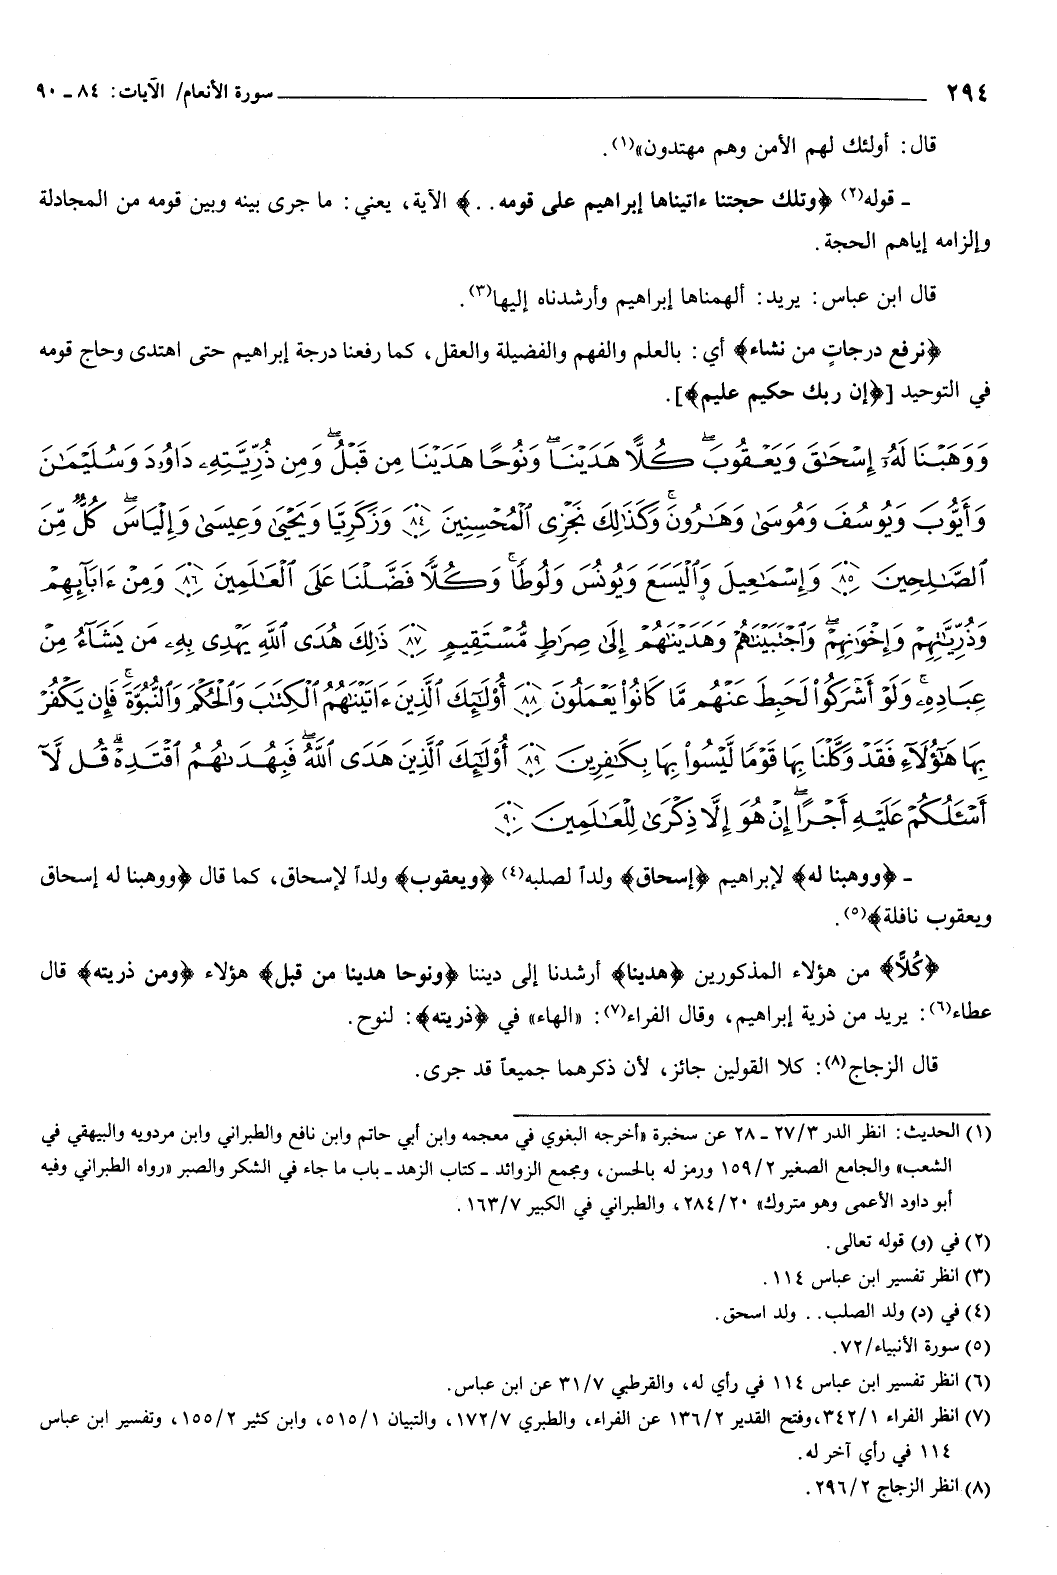 ٢٩٤ ــــــــــ سورة الأنعام/ الآيات: ٨٤ ـ ٩٠
قال: أولئك لهم الأمن وهم مهتدون»(١).
ـ قوله(٢) ﴿وتلك حجتنا ءاتيناها إبراهيم على قومه. .﴾ الآية، يعني: ما جرى بينه وبين قومه من المجادلة
وإلزامه إياهم الحجة.
قال ابن عباس: يريد: ألهمناها إبراهيم وأرشدناه إليها(٣).
﴿نرفع درجاتٍ من نشاء﴾ أي: بالعلم والفهم والفضيلة والعقل، كما رفعنا درجة إبراهيم حتى اهتدى وحاج قومه
في التوحيد [﴿إن ربك حكيم عليم﴾].
وَوَهَبْنَا لَهُۥٓ إِسْحَٰقَ وَيَعْقُوبَۚ كُلًّا هَدَيْنَاۚ وَنُوحًا هَدَيْنَا مِن قَبْلُۖ وَمِن ذُرِّيَّتِهِۦ دَاوُۥدَ وَسُلَيْمَٰنَ
وَأَيُّوبَ وَيُوسُفَ وَمُوسَىٰ وَهَٰرُونَۚ وَكَذَٰلِكَ نَجْزِى ٱلْمُحْسِنِينَ ٨٤ وَزَكَرِيَّا وَيَحْيَىٰ وَعِيسَىٰ وَإِلْيَاسَۖ كُلٌّ مِّنَ
ٱلصَّٰلِحِينَ ٨٥ وَإِسْمَٰعِيلَ وَٱلْيَسَعَ وَيُونُسَ وَلُوطًاۚ وَكُلًّا فَضَّلْنَا عَلَى ٱلْعَٰلَمِينَ ٨٦ وَمِنْ ءَابَآئِهِمْ
وَذُرِّيَّٰتِهِمْ وَإِخْوَٰنِهِمْۖ وَٱجْتَبَيْنَٰهُمْ وَهَدَيْنَٰهُمْ إِلَىٰ صِرَٰطٍ مُّسْتَقِيمٍ ٨٧ ذَٰلِكَ هُدَى ٱللَّهِ يَهْدِى بِهِۦ مَن يَشَآءُ مِنْ
عِبَادِهِۦۚ وَلَوْ أَشْرَكُوا۟ لَحَبِطَ عَنْهُم مَّا كَانُوا۟ يَعْمَلُونَ ٨٨ أُو۟لَٰٓئِكَ ٱلَّذِينَ ءَاتَيْنَٰهُمُ ٱلْكِتَٰبَ وَٱلْحُكْمَ وَٱلنُّبُوَّةَۚ فَإِن يَكْفُرْ
بِهَا هَٰٓؤُلَآءِ فَقَدْ وَكَّلْنَا بِهَا قَوْمًا لَّيْسُوا۟ بِهَا بِكَٰفِرِينَ ٨٩ أُو۟لَٰٓئِكَ ٱلَّذِينَ هَدَى ٱللَّهُۖ فَبِهُدَىٰهُمُ ٱقْتَدِهْۗ قُل لَّآ
أَسْـَٔلُكُمْ عَلَيْهِ أَجْرًاۖ إِنْ هُوَ إِلَّا ذِكْرَىٰ لِلْعَٰلَمِينَ ٩٠
ـ ﴿ووهبنا له﴾ لإبراهيم ﴿إسحاق﴾ ولداً لصلبه(٤) ﴿ويعقوب﴾ ولداً لإسحاق، كما قال ﴿ووهبنا له إسحاق
ويعقوب نافلة﴾(٥).
﴿كُلًّا﴾ من هؤلاء المذكورين ﴿هدينا﴾ أرشدنا إلى ديننا ﴿ونوحا هدينا من قبل﴾ هؤلاء ﴿ومن ذريته﴾ قال
عطاء(٦): يريد من ذرية إبراهيم، وقال الفراء(٧): «الهاء» في ﴿ذريته﴾: لنوح.
قال الزجاج(٨): كلا القولين جائز، لأن ذكرهما جميعاً قد جرى.
(١) الحديث: انظر الدر ٣/ ٢٧ ـ ٢٨ عن سخبرة «أخرجه البغوي في معجمه وابن أبي حاتم وابن نافع والطبراني وابن مردويه والبيهقي في
الشعب» والجامع الصغير ٢/ ١٥٩ ورمز له بالحسن، ومجمع الزوائد ـ كتاب الزهد ـ باب ما جاء في الشكر والصبر «رواه الطبراني وفيه
أبو داود الأعمى وهو متروك» ٢٠/ ٢٨٤، والطبراني في الكبير ٧/ ١٦٣.
(٢) في (و) قوله تعالى.
(٣) انظر تفسير ابن عباس ١١٤.
(٤) في (د) ولد الصلب. . ولد اسحق.
(٥) سورة الأنبياء/ ٧٢.
(٦) انظر تفسير ابن عباس ١١٤ في رأي له، والقرطبي ٧/ ٣١ عن ابن عباس.
(٧) انظر الفراء ١/ ٣٤٢، وفتح القدير ٢/ ١٣٦ عن الفراء، والطبري ٧/ ١٧٢، والتبيان ١/ ٥١٥، وابن كثير ٢/ ١٥٥، وتفسير ابن عباس
١١٤ في رأي آخر له.
(٨) انظر الزجاج ٢/ ٢٩٦.